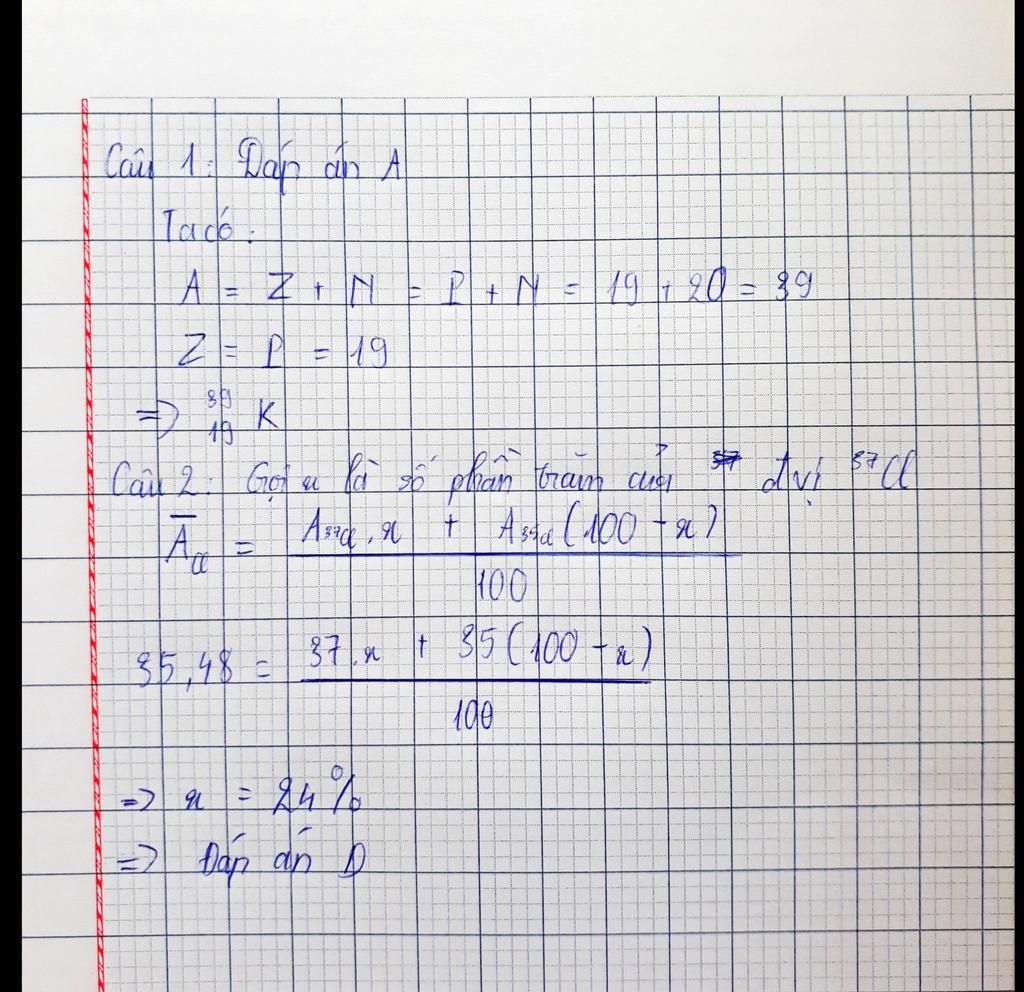 Câu 1: Đáp án A
Ta có:
A = Z + N = P + N = 19 + 20 = 39
Z = P = 19
=> ³⁹₁₉ K
Câu 2: Gọi x là số phần trăm của đ vị ³⁷Cl
A̅Cl = (A³⁷Cl . x + A³⁵Cl (100 - x)) / 100
35,48 = (37.x + 35(100 - x)) / 100
=> x = 24%
=> Đáp án D